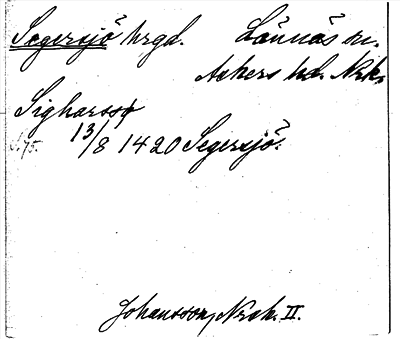 Segersjö hrgd. Lännäs sn.
Askers hd. Nrk.
Sigharssø
13/8 1420 Segersjö.
s. 75.
Johansson, Nrk. II.